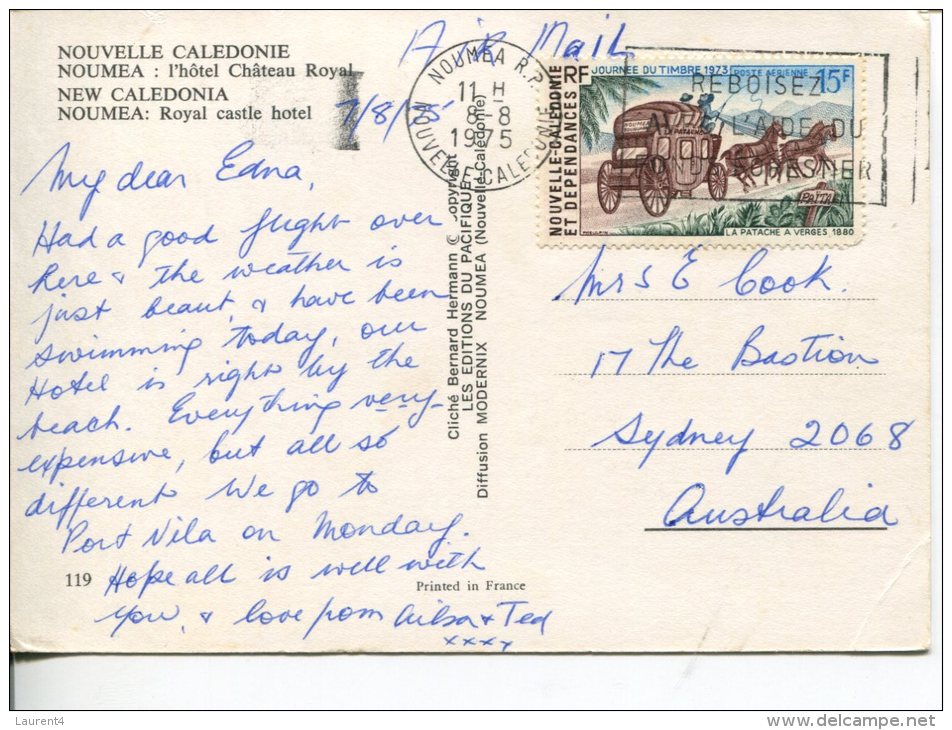 Air Mail
NOUVELLE CALEDONIE
NOUMEA : l'hôtel Château Royal
NEW CALEDONIA
NOUMEA: Royal castle hotel
7/8/75
My dear Edna,
Had a good flight over
here & the weather is
just beaut, & have been
swimming today, our
Hotel is right by the
beach. Everything very
expensive, but all so
different We go to
Port Vila on Monday.
Hope all is well with
you, & love from Ailsa & Ted
xxxx
119
Printed in France
Cliché Bernard Hermann © copyright
LES EDITIONS DU PACIFIQUE
Diffusion MODERNIX NOUMEA (Nouvelle-Calédonie)
NOUMEA R.P.
11 H
8-8
1975
NOUVELLE CALEDONIE
REBOISEZ
L'AIDE DU
FORESTIER
RF
JOURNEE DU TIMBRE 1973
POSTE AERIENNE
15F
NOUVELLE-CALEDONIE
ET DEPENDANCES
NOUMEA
PATACHE
PAITA
LA PATACHE A VERGES 1880
Mrs E Cook.
17 The Bastion
Sydney 2068
Australia
Laurent4
www.delcampe.net